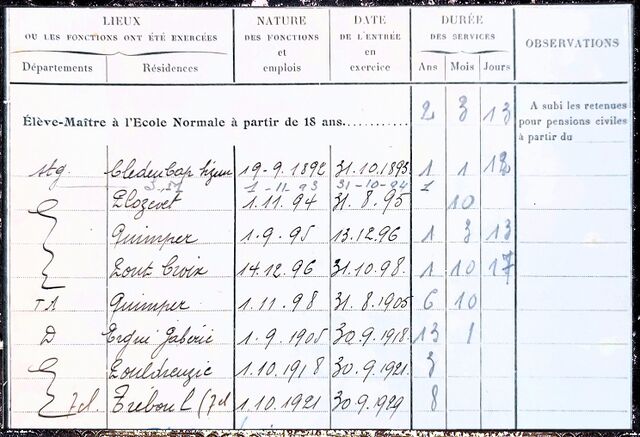 LIEUX NATURE DATE DURÉE
OU LES FONCTIONS ONT ÉTÉ EXERCÉES DES FONCTIONS DE L'ENTRÉE DES SERVICES OBSERVATIONS
et en
Départements Résidences emplois exercice Ans Mois Jours
Élève-Maître à l'Ecole Normale à partir de 18 ans............ 2 3 13
A subi les retenues
pour pensions civiles
à partir du
stg. Cleden Cap Sizun 19-9.1892 31.10.1893 1 1 12
1-11-93 31-10-94 1
Plozevet 1.11.94 31.8.95 10
Quimper 1.9.95 13.12.96 1 3 13
Pont Croix 14.12.96 31.10.98. 1 10 17
Quimper 1.11.98 31.8.1905 6 10
D Ergué Gabéric 1.9.1905 30.9.1918 13 1
Pouldreuzic 1.10.1918 30.9.1921. 3
Tréboul 1.10.1921 30.9.1929 8